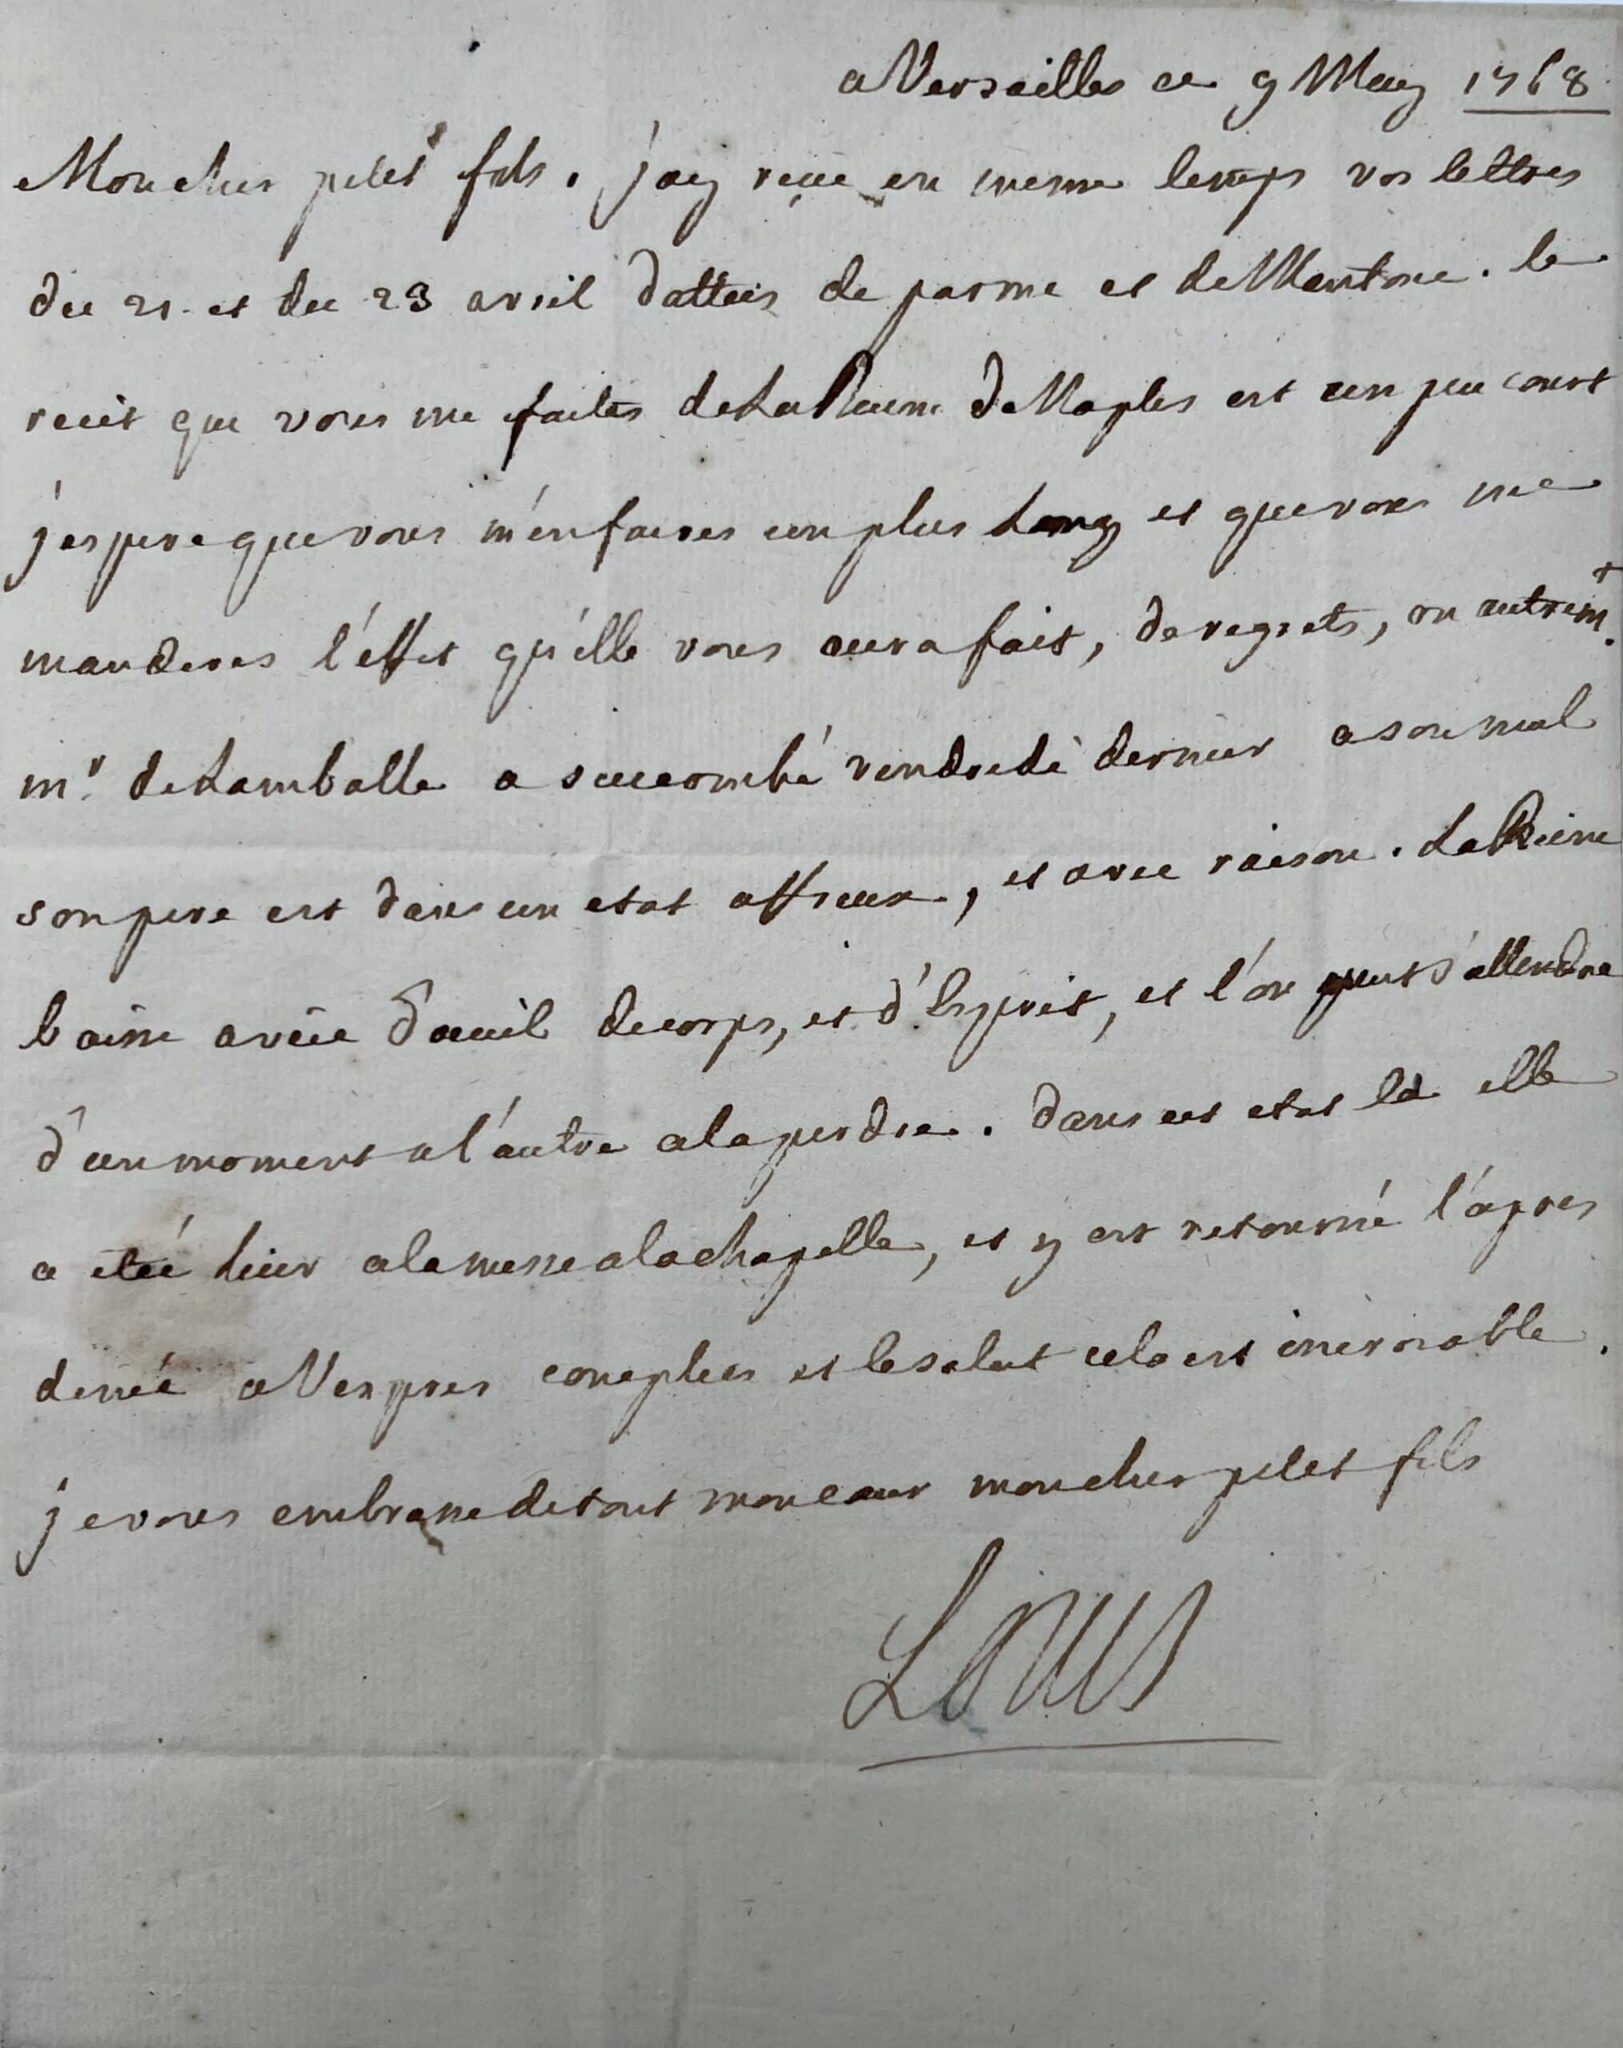 a Versailles ce 9 May 1768
Mon cher petit fils. j'ay reçue en meme temps vos lettres
du 21. et du 23 avril dattées de parme et de Mantoue. le
recit que vous me faites de La Reine de Naples est un peu court
j'espere que vous m'en faires un plus Long et que vous me
manderes l'effet qu'elle vous aura fait, de regrets, ou autremt.
mr. de Lamballe a succombé vendredi dernier a son mal
son pere est dans un etat affreux, et avec raison. La Reine
baisse a vüe d'oeuil de corps, et d'esprit, et l'on peut s'attendre
d'un moment a l'autre a la perdre. dans cet etat la elle
a etée hier a la messe a la chapelle, et y est retourné l'apres
dinée a Vespres complies et le salut cela est incroiable.
je vous embrasse de tout mon cœur mon cher petit fils
Louis